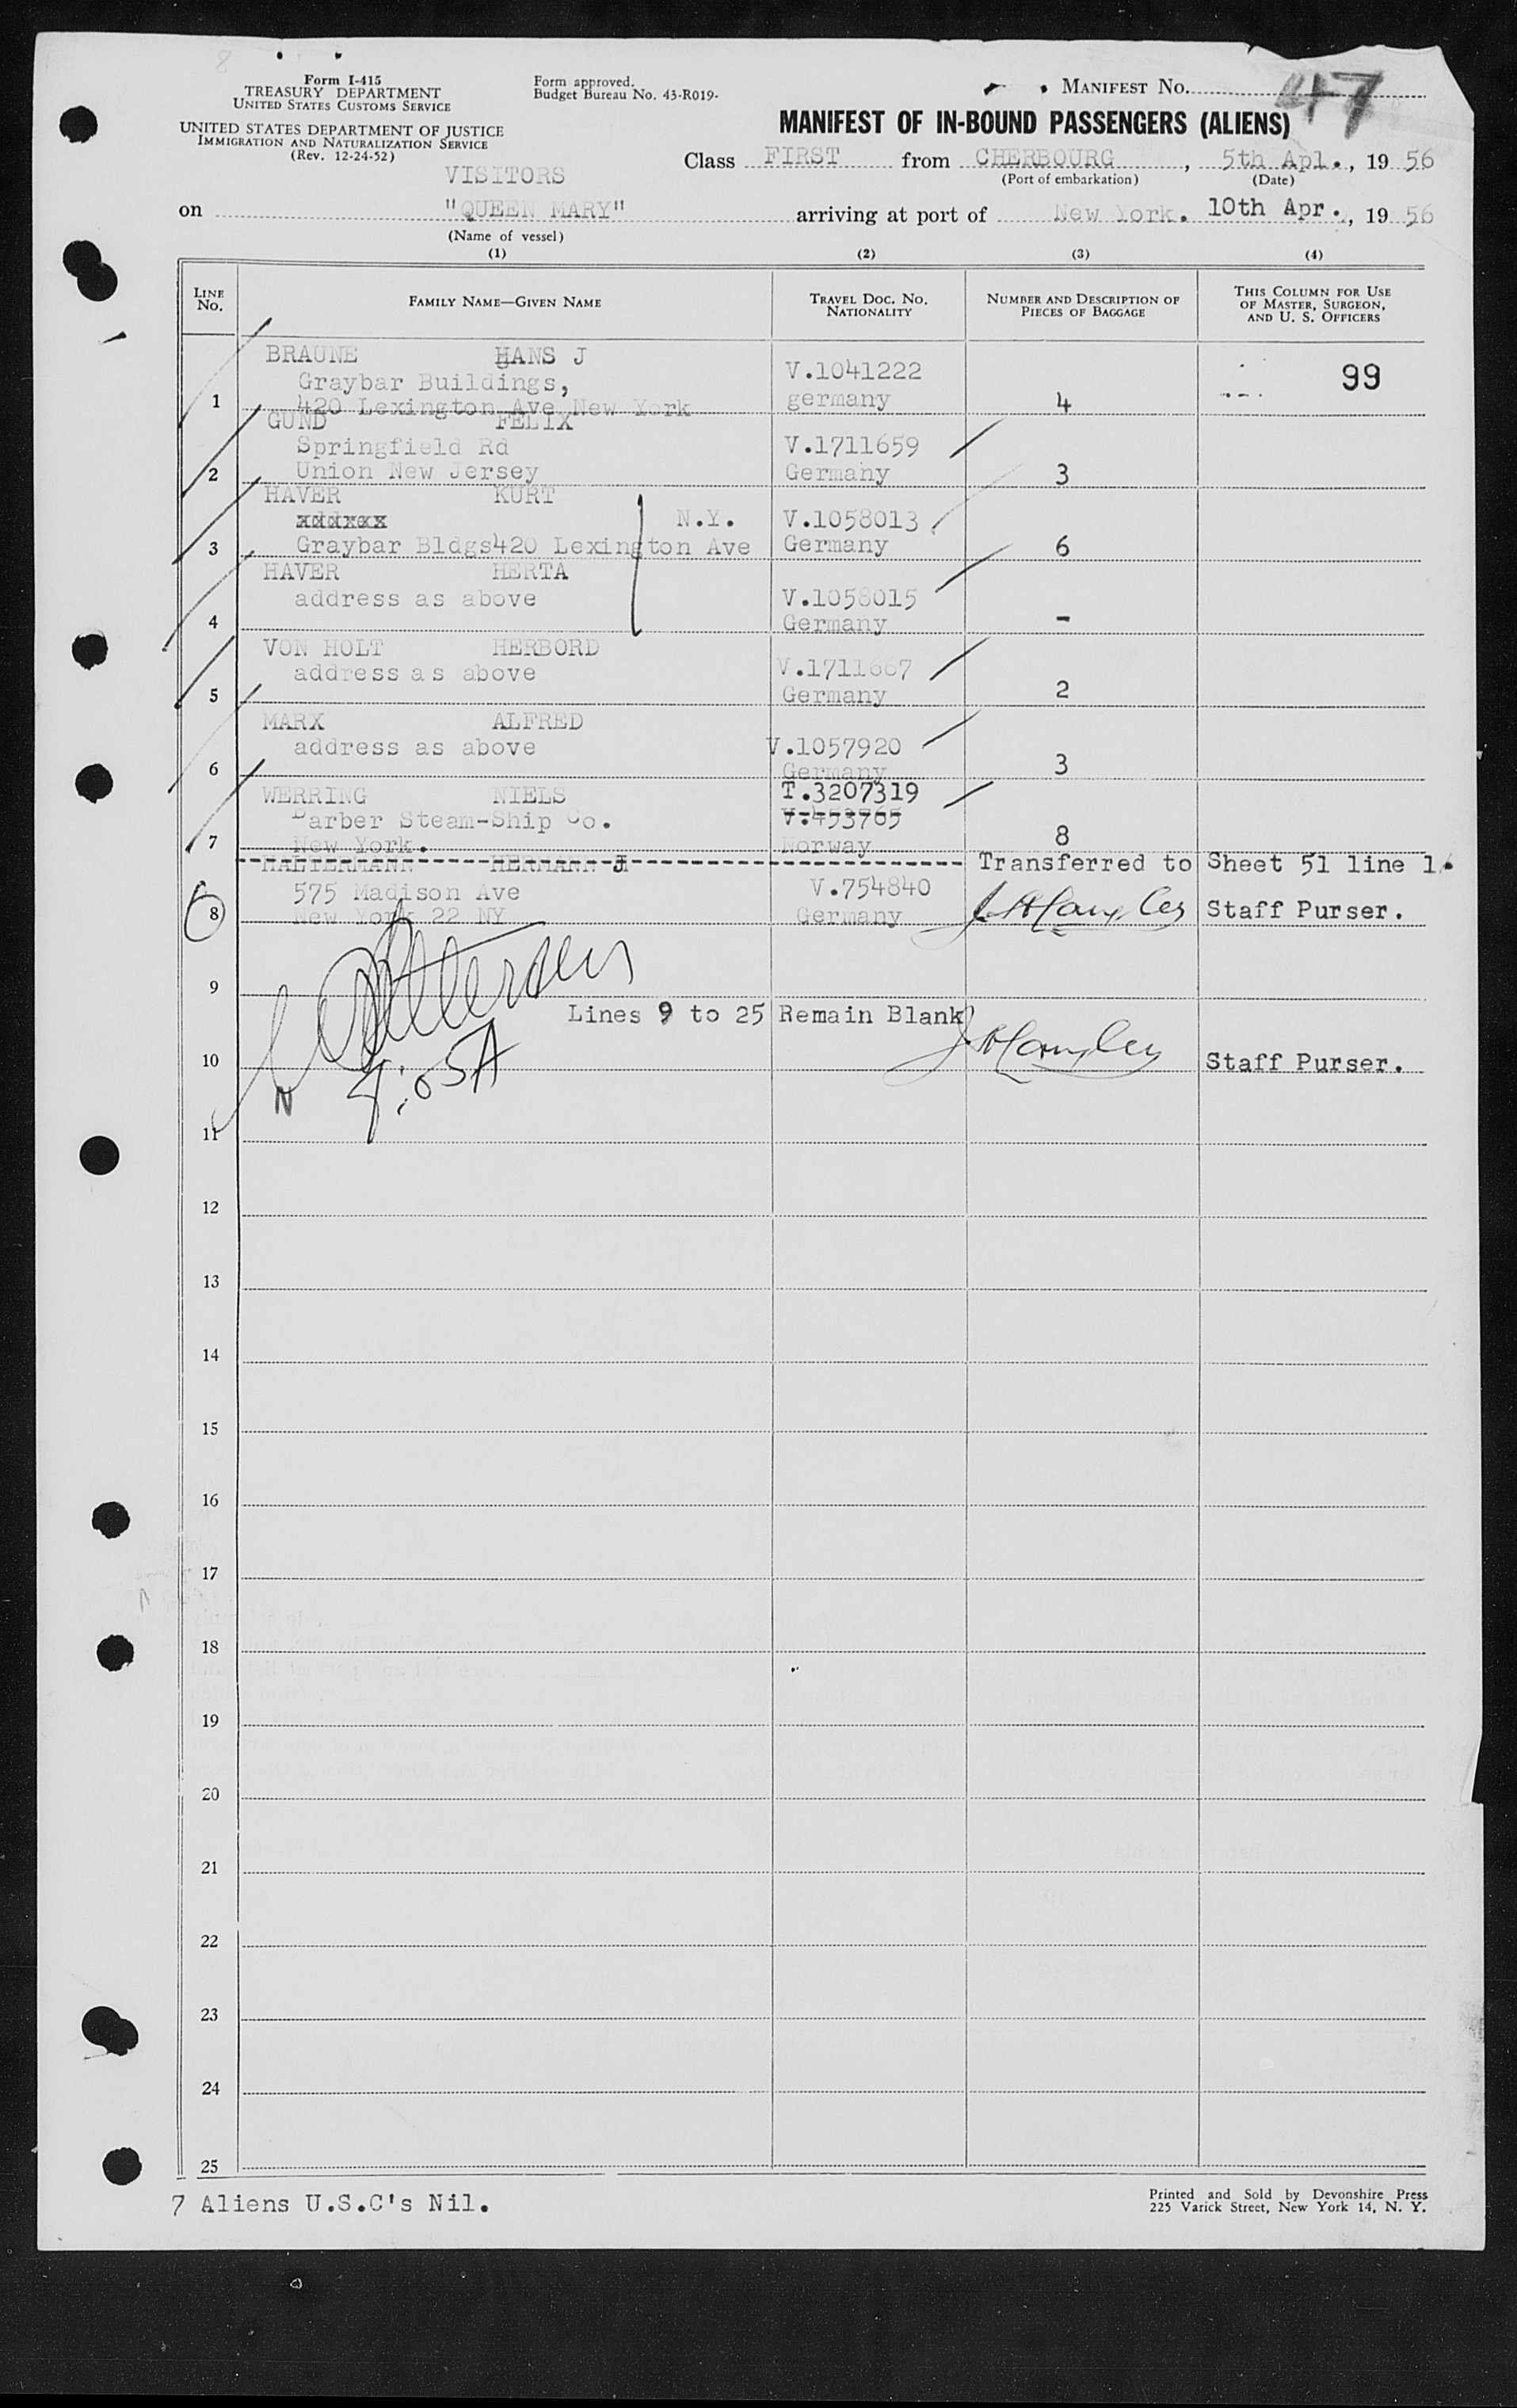 Form I-415
TREASURY DEPARTMENT
UNITED STATES CUSTOMS SERVICE
UNITED STATES DEPARTMENT OF JUSTICE
IMMIGRATION AND NATURALIZATION SERVICE
(Rev. 12-24-52)
Form approved.
Budget Bureau No. 43-R019.
MANIFEST NO. 47
MANIFEST OF IN-BOUND PASSENGERS (ALIENS)
Class FIRST from CHERBOURG, 5th Apl., 19 56
(Port of embarkation) (Date)
VISITORS
on "QUEEN MARY" arriving at port of New York. 10th Apr., 19 56
(Name of vessel)
(1) (2) (3) (4)
LINE NO. FAMILY NAME—GIVEN NAME TRAVEL DOC. NO. NATIONALITY NUMBER AND DESCRIPTION OF PIECES OF BAGGAGE THIS COLUMN FOR USE OF MASTER, SURGEON, AND U. S. OFFICERS
BRAUNE HANS J
Graybar Buildings, V.1041222 99
1 420 Lexington Ave New York germany 4
GUND FELIX
Springfield Rd V.1711659
2 Union New Jersey Germany 3
HAVER KURT
N.Y. V.1058013
3 Graybar Bldgs420 Lexington Ave Germany 6
HAVER HERTA
address as above V.1058015
4 Germany -
VON HOLT HERBORD
address as above V.1711667
5 Germany 2
MARX ALFRED
address as above V.1057920
6 Germany 3
WERRING NIELS T.3207319
Barber Steam-Ship Co. V.453765
7 New York. Norway 8
HALTERMANN HERMANN J Transferred to Sheet 51 line 1.
575 Madison Ave V.754840
8 New York 22 NY Germany J H Langley Staff Purser.
9
Lines 9 to 25 Remain Blank
10 J H Langley Staff Purser.
N
11
12
13
14
15
16
17
18
19
20
21
22
23
24
25
7 Aliens U.S.C's Nil.
Printed and Sold by Devonshire Press
225 Varick Street, New York 14, N. Y.